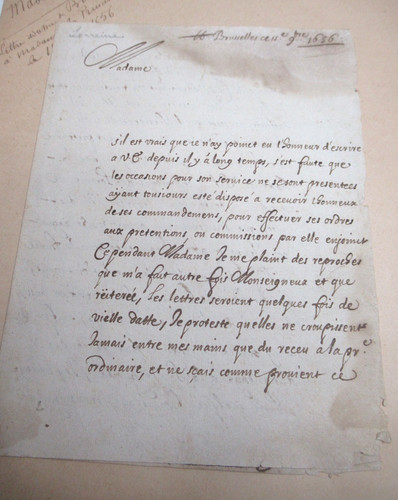 Lorraine
Bruxelles ce 11e 9bre 1656
Madame
s'il est vrais que je n'ay pomct eu l'honneur d'escrire
a V.E. depuis il y à long temps, s'est faute que
les occasions pour son service ne se sont presentees
ayant tousiours esté disposé a recevoir lhonneur
de ses commandemens, pour effectuer ses ordres
aux pretentions, ou commissions par elle enjoinct
Cependant Madame Je me plaint des reproches
que m'a fait autre fois Monseigneur et que
réiterée, Les lettres seroient quelques fois de
vielle datte, Je proteste quelles ne croupissent
Jamais entre mes mains que du receu à la pre
ordinaire, et ne scais comme provient ce